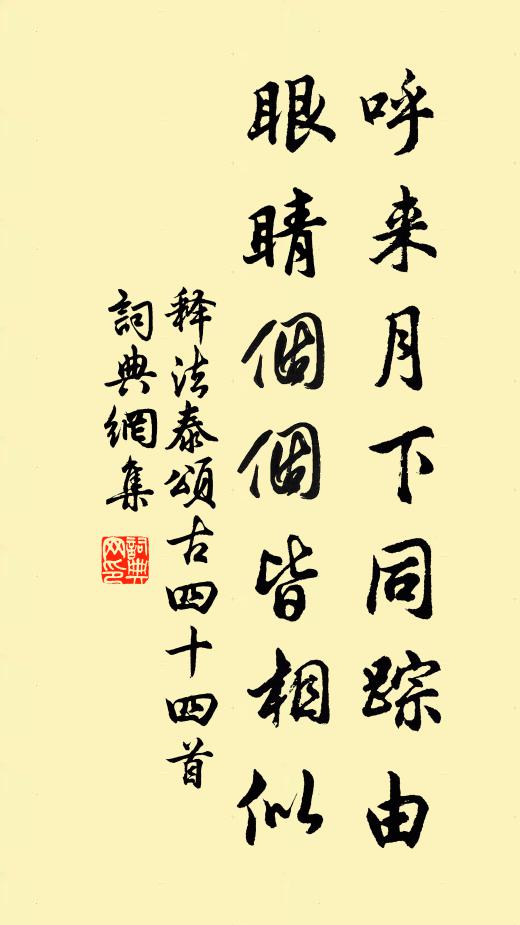 呼来月下同踪由
眼睛個個皆相似
释法泰頌古四十四首
詞典網集
詞典網印